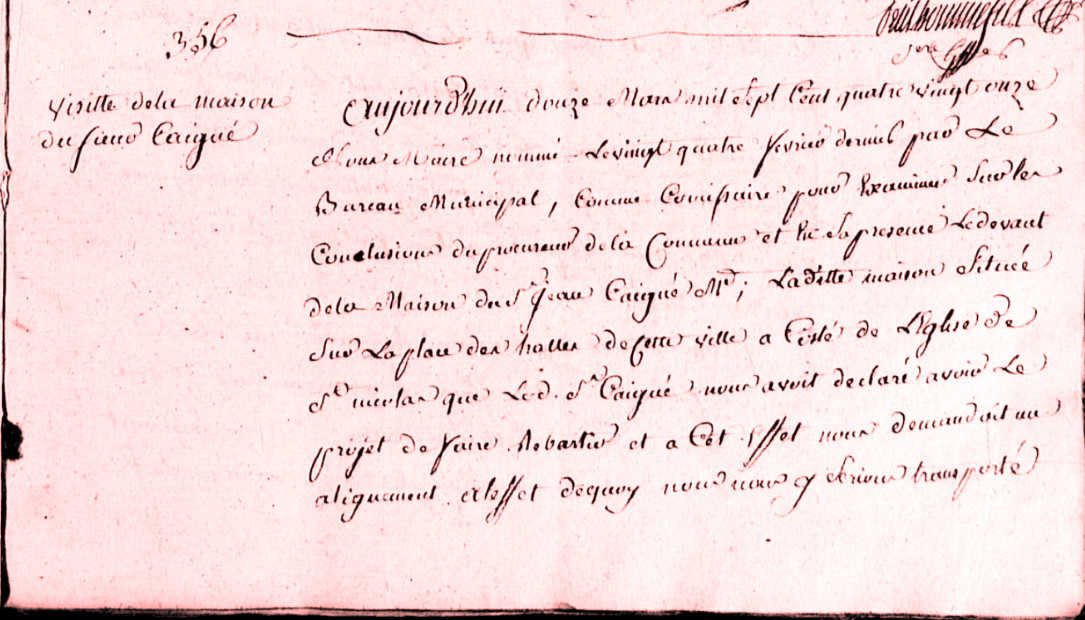 356
Visitte dela maison
du sieur Caigué
Aujourd'huy douze Mars mil sept Cent quatre vingt onze
Nous Maire nommé Le vingt quatre fevrier dernier par Le
Bureau Municipal, Comme Commissaire pour Examiner Sur les
Conclusions du procureur dela Commune et En Sa presence Le devant
dela Maison du Sr Jean Caigué Md; Laditte maison Située
Sur La place des halles de Cette ville a Costé de L'Eglise De
St nicolas que Led. Sr Caigué nous avoit declaré avoir Le
projet de faire Rebastir et a Cet Effet nous demandoit un
alignement. a leffet dequoy nous nous y serions transporté